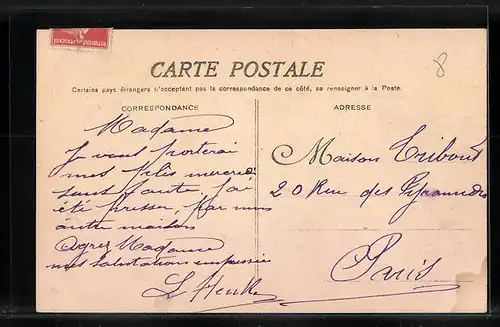 RÉPUBLIQUE FRANÇAISE
8
CARTE POSTALE
Certains pays étrangers n'acceptant pas la correspondance de ce côté, se renseigner à la Poste.
CORRESPONDANCE
Madame
Je vous porterai
mes plis mercredi
sans faute, j'ai
été presser, par mon
autre maison
Agrez Madame
mes salutations empressées
ADRESSE
Maison
20 Rue des Pyramides
Paris